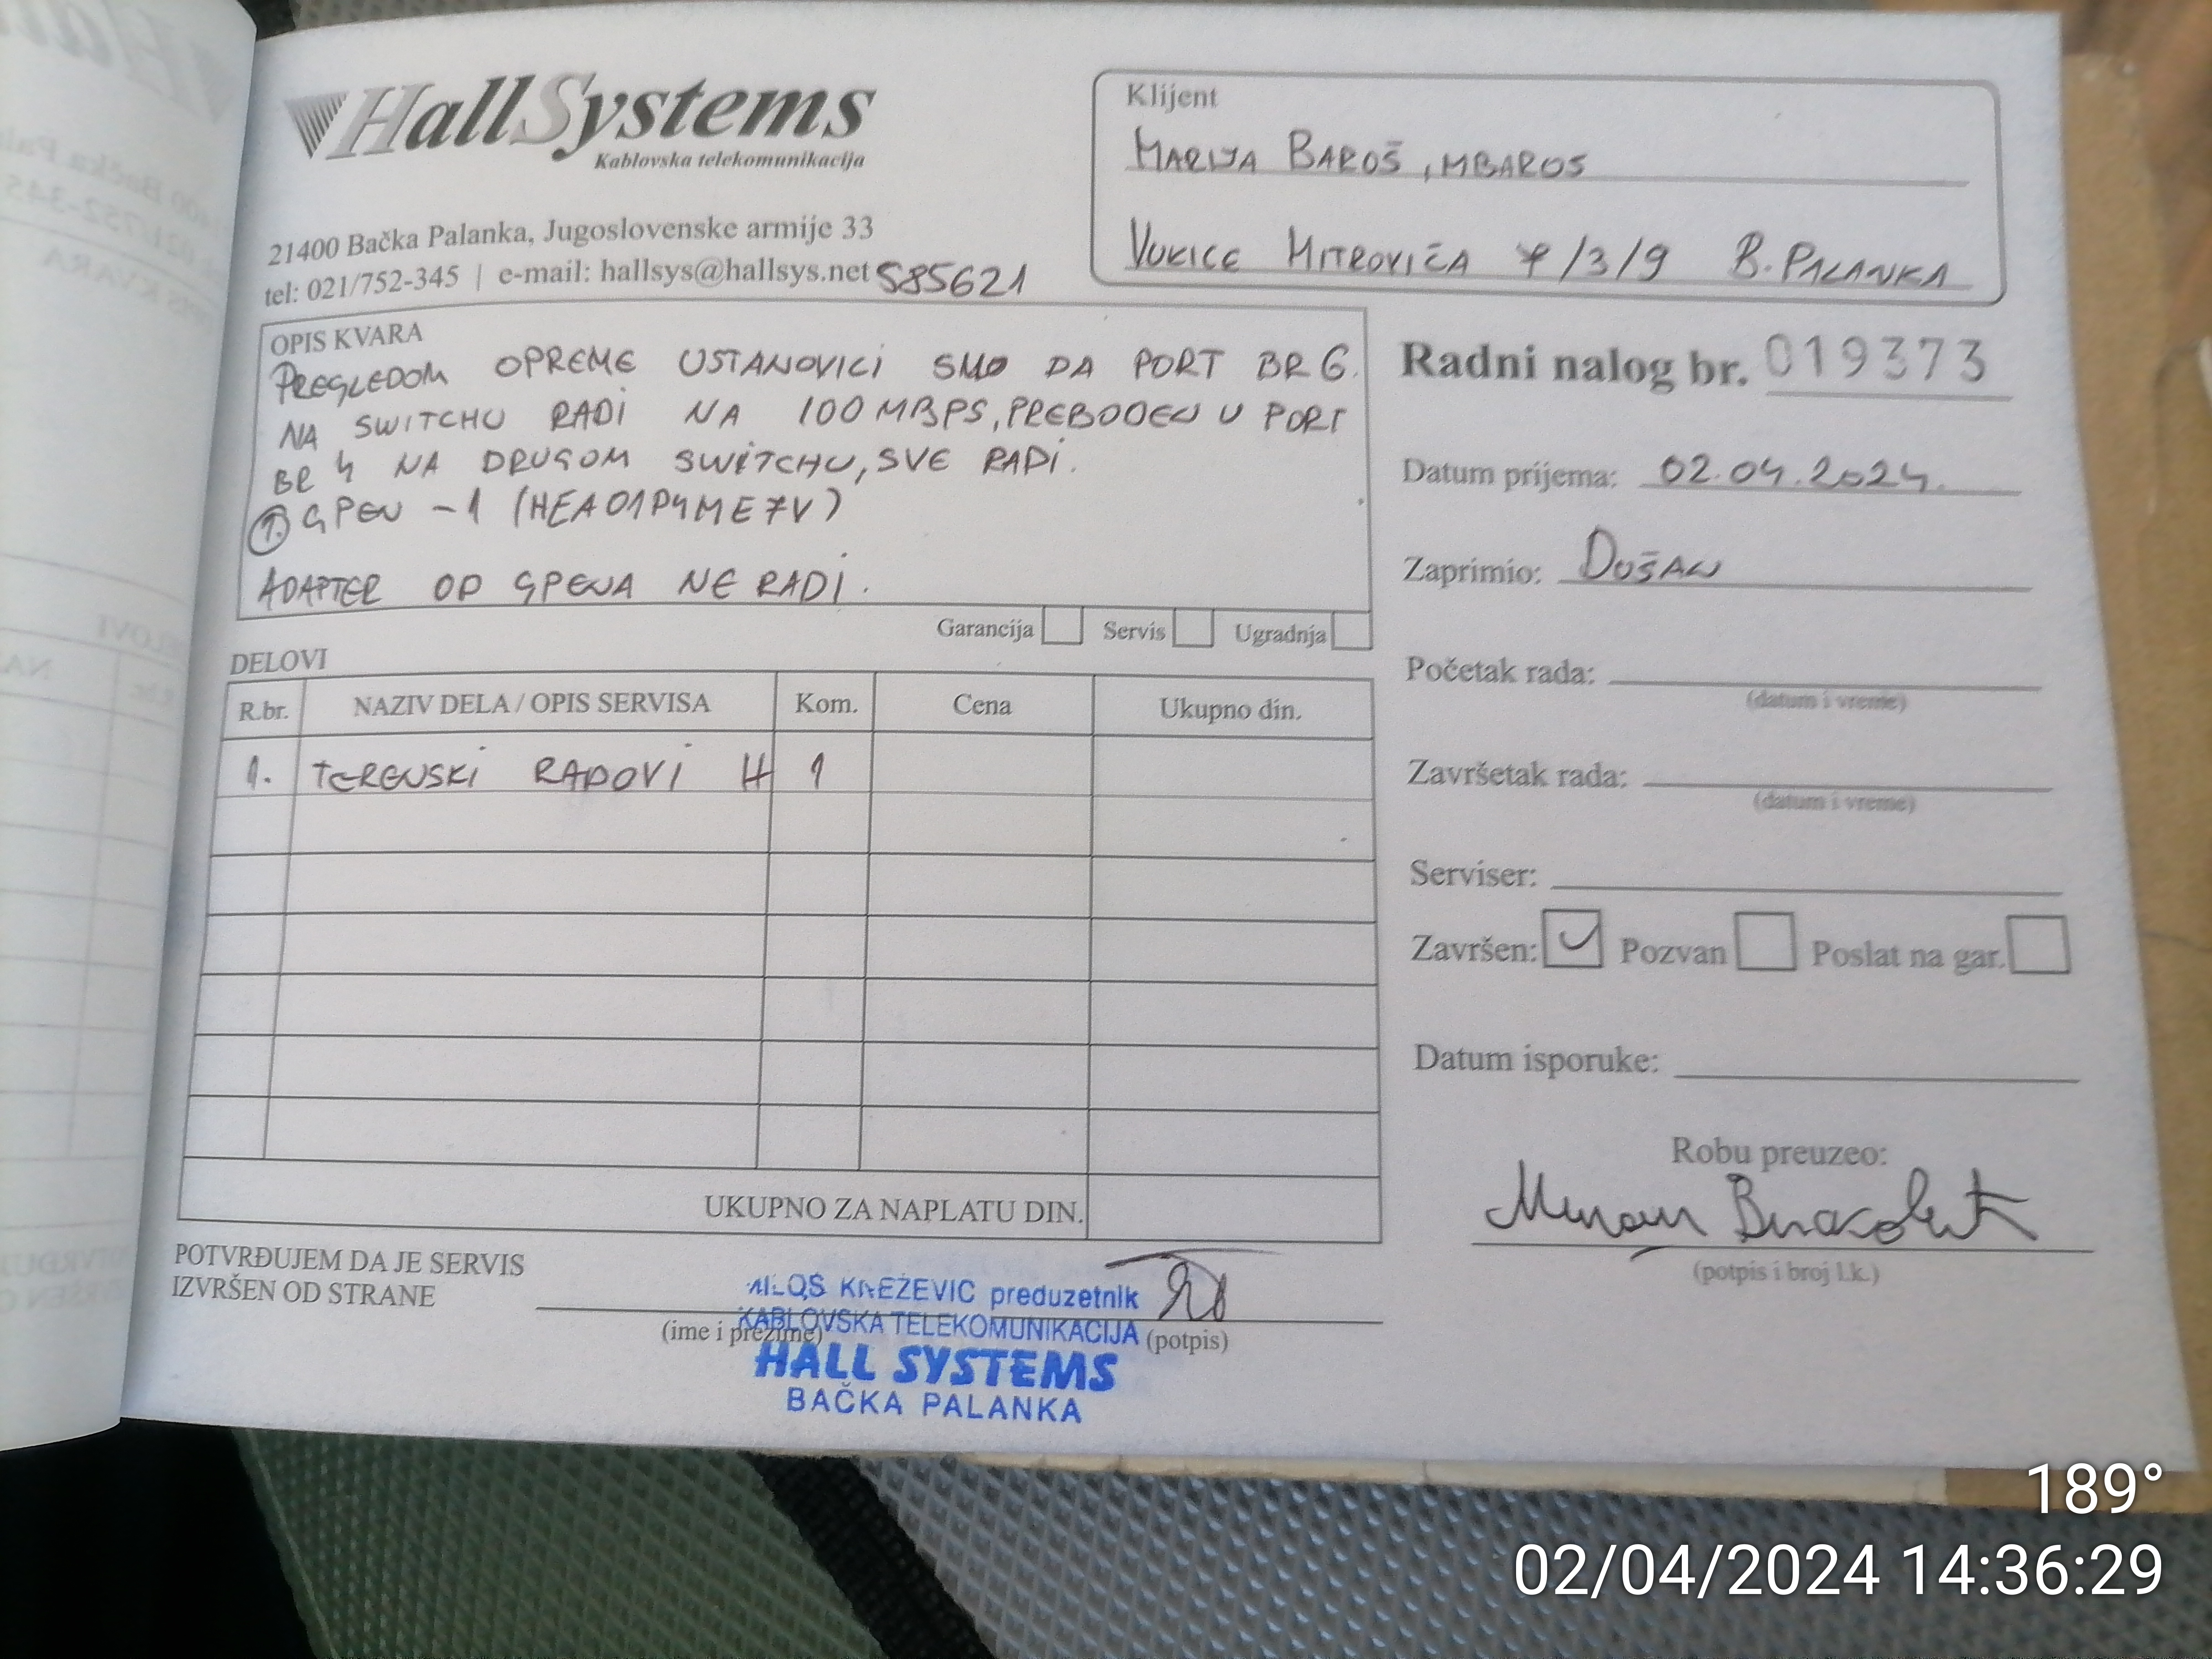 HallSystems
Kablovska telekomunikacija
21400 Bačka Palanka, Jugoslovenske armije 33
tel: 021/752-345 | e-mail: hallsys@hallsys.net 585621
Klijent
MARIJA BAROŠ, MBAROS
VUKICE MITROVIĆA 7/3/9 B. PALANKA
OPIS KVARA
PREGLEDOM OPREME USTANOVICI SMO DA PORT BR 6.
NA SWITCHU RADI NA 100 MBPS, PREBODEN U PORT
BR 4 NA DRUGOM SWITCHU, SVE RADI.
1. GPEN -1 (HEA01P4ME7V)
ADAPTER OD GPENA NE RADI.
Garancija Servis Ugradnja
Radni nalog br. 019373
Datum prijema: 02.04.2024.
Zaprimio: DUŠAN
Početak rada:
(datum i vreme)
Završetak rada:
(datum i vreme)
Serviser:
Završen: Pozvan Poslat na gar.
Datum isporuke:
Robu preuzeo:
(potpis i broj l.k.)
DELOVI
R.br. NAZIV DELA / OPIS SERVISA Kom. Cena Ukupno din.
1. TERENSKI RADOVI H 1
UKUPNO ZA NAPLATU DIN.
POTVRĐUJEM DA JE SERVIS
IZVRŠEN OD STRANE
(ime i prezime) (potpis)
MILOŠ KNEŽEVIĆ preduzetnik
KABLOVSKA TELEKOMUNIKACIJA
HALL SYSTEMS
BAČKA PALANKA
189°
02/04/2024 14:36:29